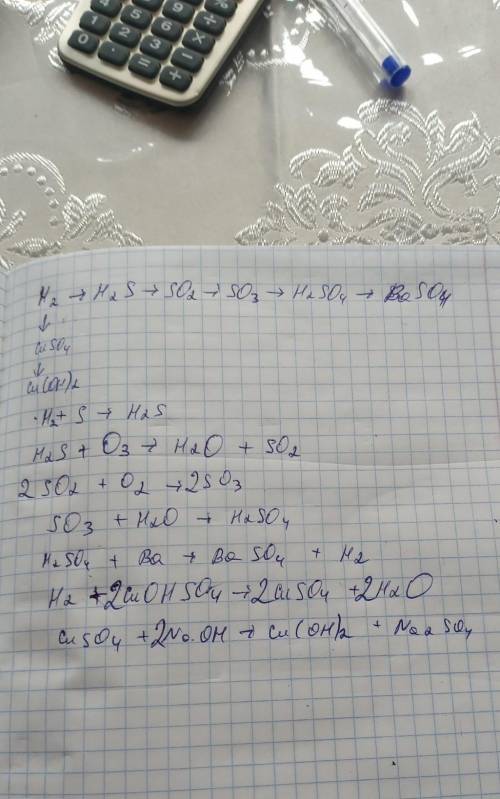 4 5 6 ÷
1 2 3 ×
0 . = +
H₂ → H₂S → SO₂ → SO₃ → H₂SO₄ → BaSO₄
↓
CuSO₄
↓
Cu(OH)₂
H₂ + S → H₂S
H₂S + O₃ → H₂O + SO₂
2SO₂ + O₂ → 2SO₃
SO₃ + H₂O → H₂SO₄
H₂SO₄ + Ba → BaSO₄ + H₂
H₂ + 2CuOHSO₄ → 2CuSO₄ + 2H₂O
CuSO₄ + 2NaOH → Cu(OH)₂ + Na₂SO₄